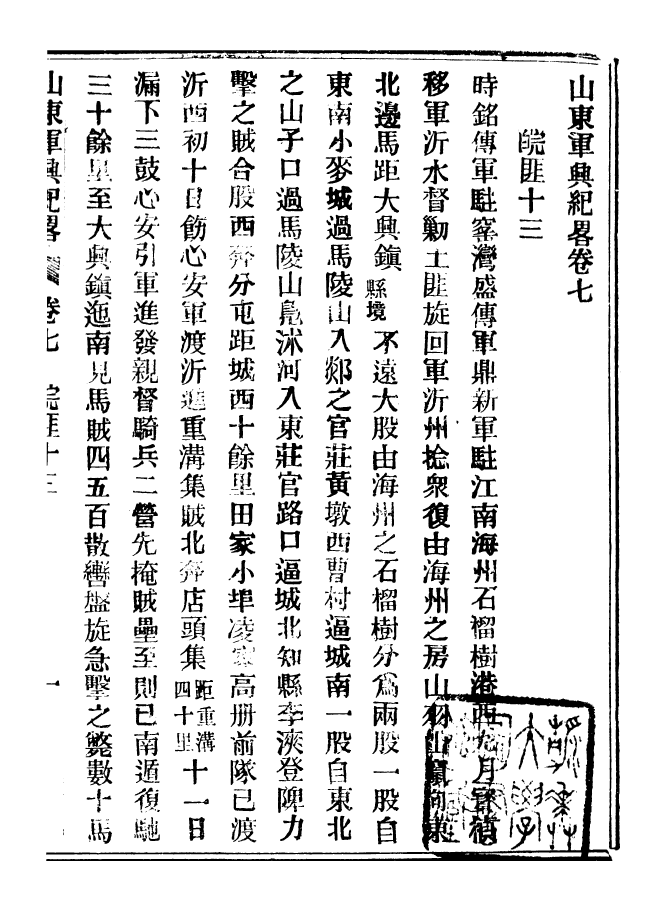 山東軍興紀畧卷七
皖匪十三
時銘傳軍駐窰灣盛傳軍鼎新軍駐江南海州石榴樹港西九月
移軍沂水督勦土匪旋回軍沂州捻衆復由海州之房山
北邊馬距大興鎮縣境不遠大股由海州之石榴樹分爲兩股一股自
東南小麥城過馬陵山入郯之官莊黃墩西曹村逼城南一股自東北
之山子口過馬陵山鳧沭河入東莊官路口逼城北知縣李浹登陴力
擊之賊合股西奔分屯距城西十餘里田家小埠凌家高册前隊已渡
沂西初十日飭心安軍渡沂進重溝集賊北奔店頭集距重溝四十里十一日
漏下三鼓心安引軍進發親督騎兵二營先掩賊壘至則已南遁復馳
三十餘里至大興鎮迤南見馬賊四五百散轡盤旋急擊之斃數十馬
山東軍興紀畧 卷七 皖匪十三 一